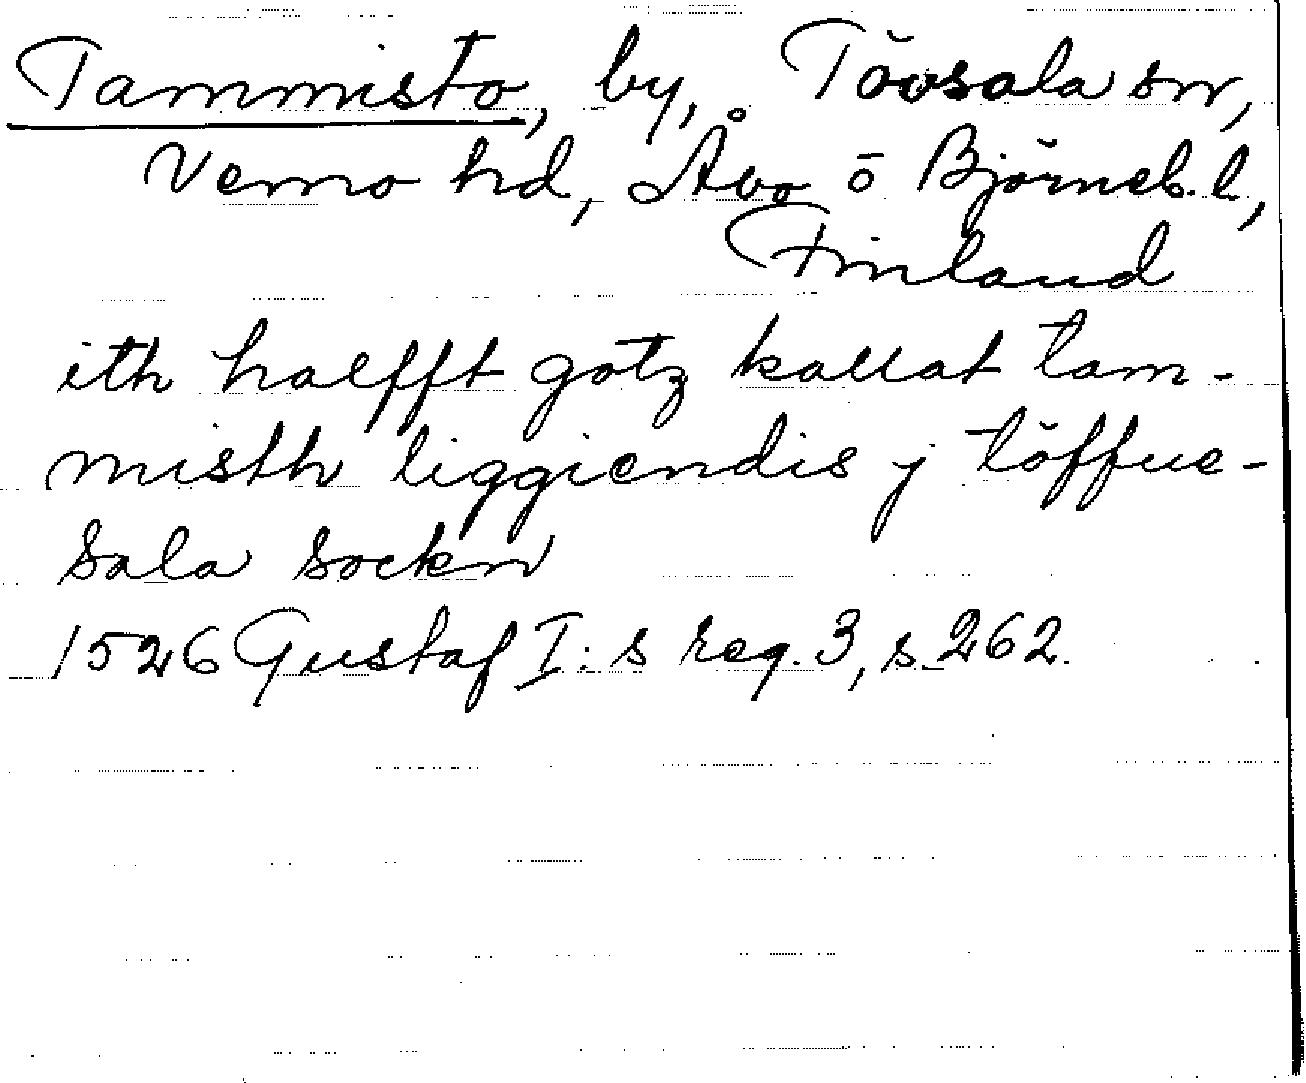 Tammisto, by, Tövsala sn,
Vemo hd, Åbo ō Björneb. l,
Finland
ith halfft gotz kallat tam-
misth liggiendis j töffue-
sala sockn
1526 Gustaf I:s reg. 3, s. 262.